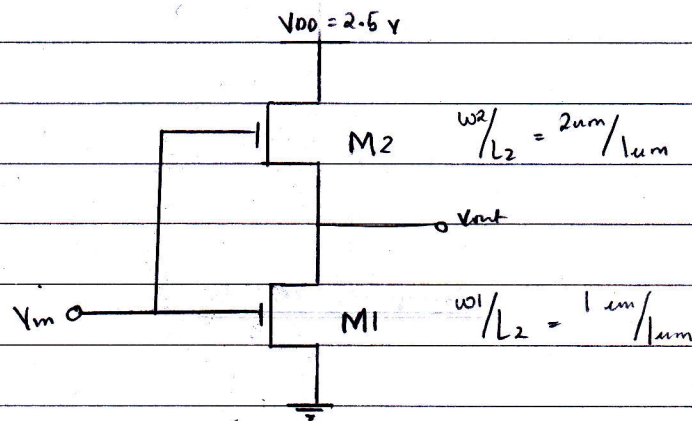 VDD = 2.5 V
M2 W2/L2 = 2um/1um
Vout
Vin M1 W1/L2 = 1um/1um